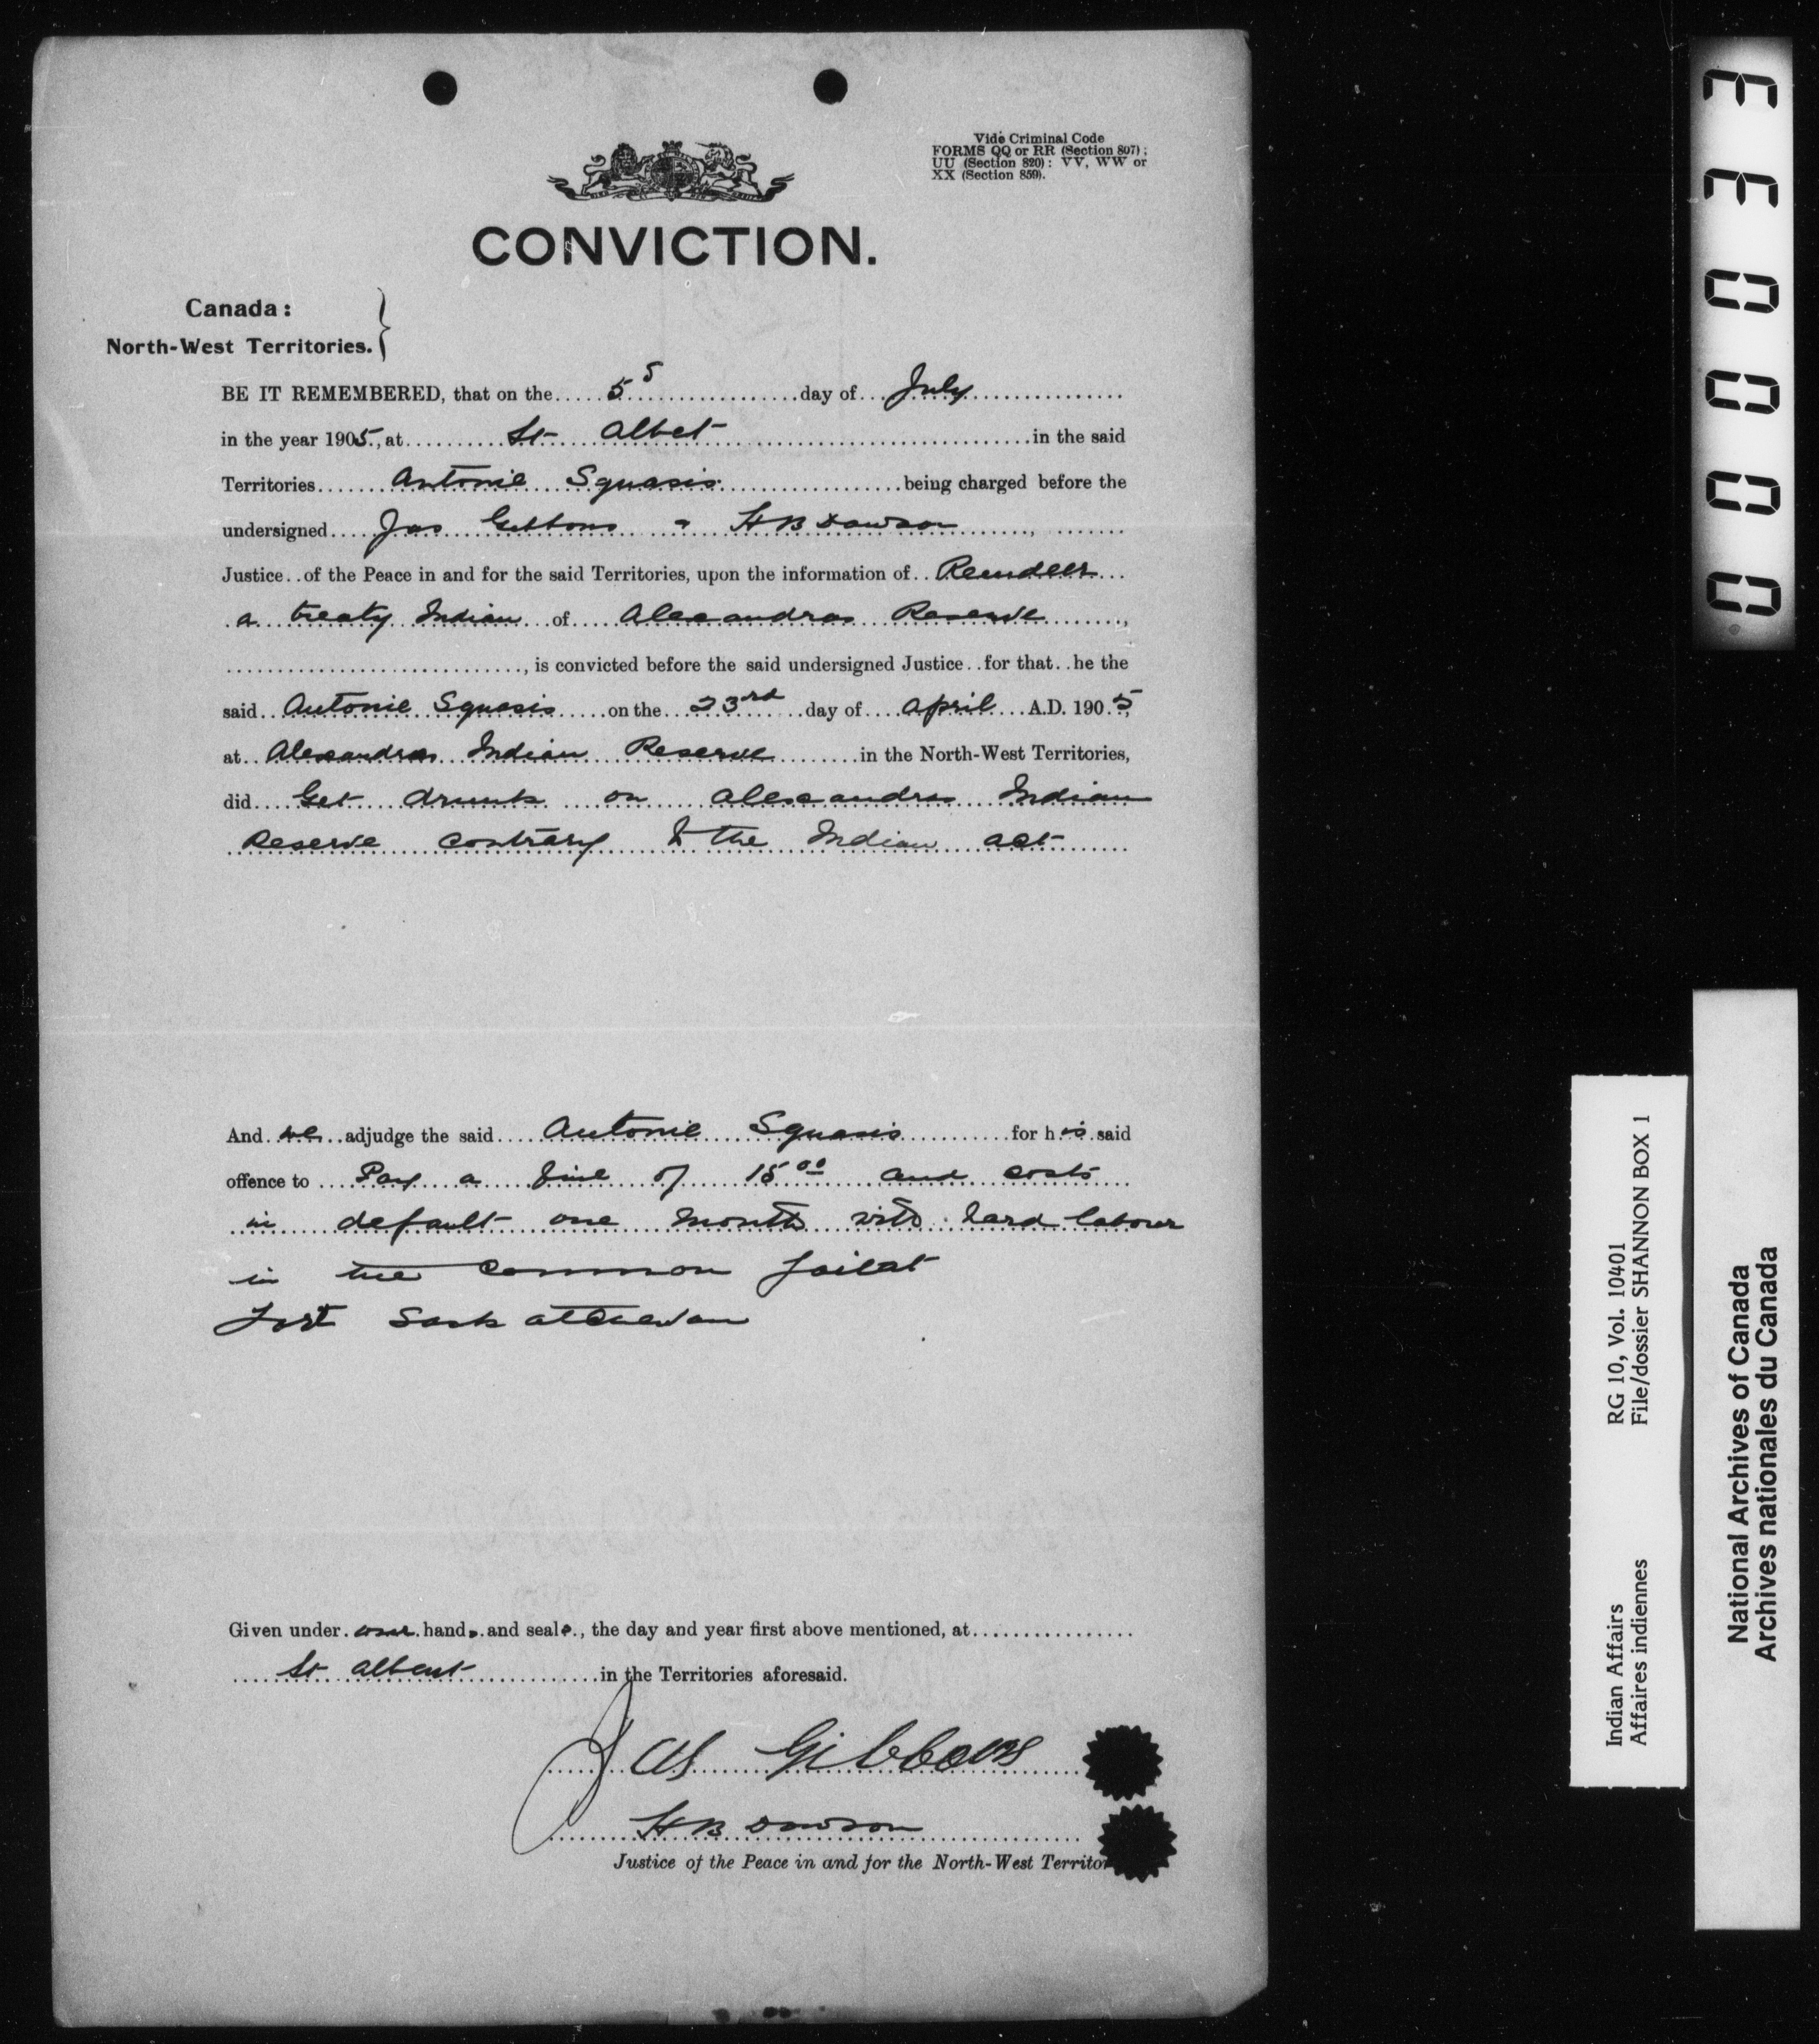 Vide Criminal Code
FORMS QQ or RR (Section 807);
UU (Section 820): VV, WW or
XX (Section 859).
CONVICTION.
Canada:
North-West Territories.
BE IT REMEMBERED, that on the 5 day of July
in the year 1905, at St Albet in the said
Territories Antonie Squasis being charged before the
undersigned Jas Gibbons & H B Dawson
Justice of the Peace in and for the said Territories, upon the information of Reindeer
a treaty Indian of Alexandras Reserve
, is convicted before the said undersigned Justice for that he the
said Antonie Squasis on the 23rd day of April A.D. 1905
at Alexandras Indian Reserve in the North-West Territories,
did Get drunk on Alexandras Indian
Reserve contrary to the Indian act
And we adjudge the said Antonie Squasis for his said
offence to Pay a fine of 15 00 and costs
in default one month with hard labour
in the common Jail at
Fort Saskatchewan
Given under our hands and seals, the day and year first above mentioned, at
St Albert in the Territories aforesaid.
Jas Gibbons
H B Dawson
Justice of the Peace in and for the North-West Territor
000033
Indian Affairs RG 10, Vol. 10401
Affaires indiennes File/dossier SHANNON BOX 1
National Archives of Canada
Archives nationales du Canada